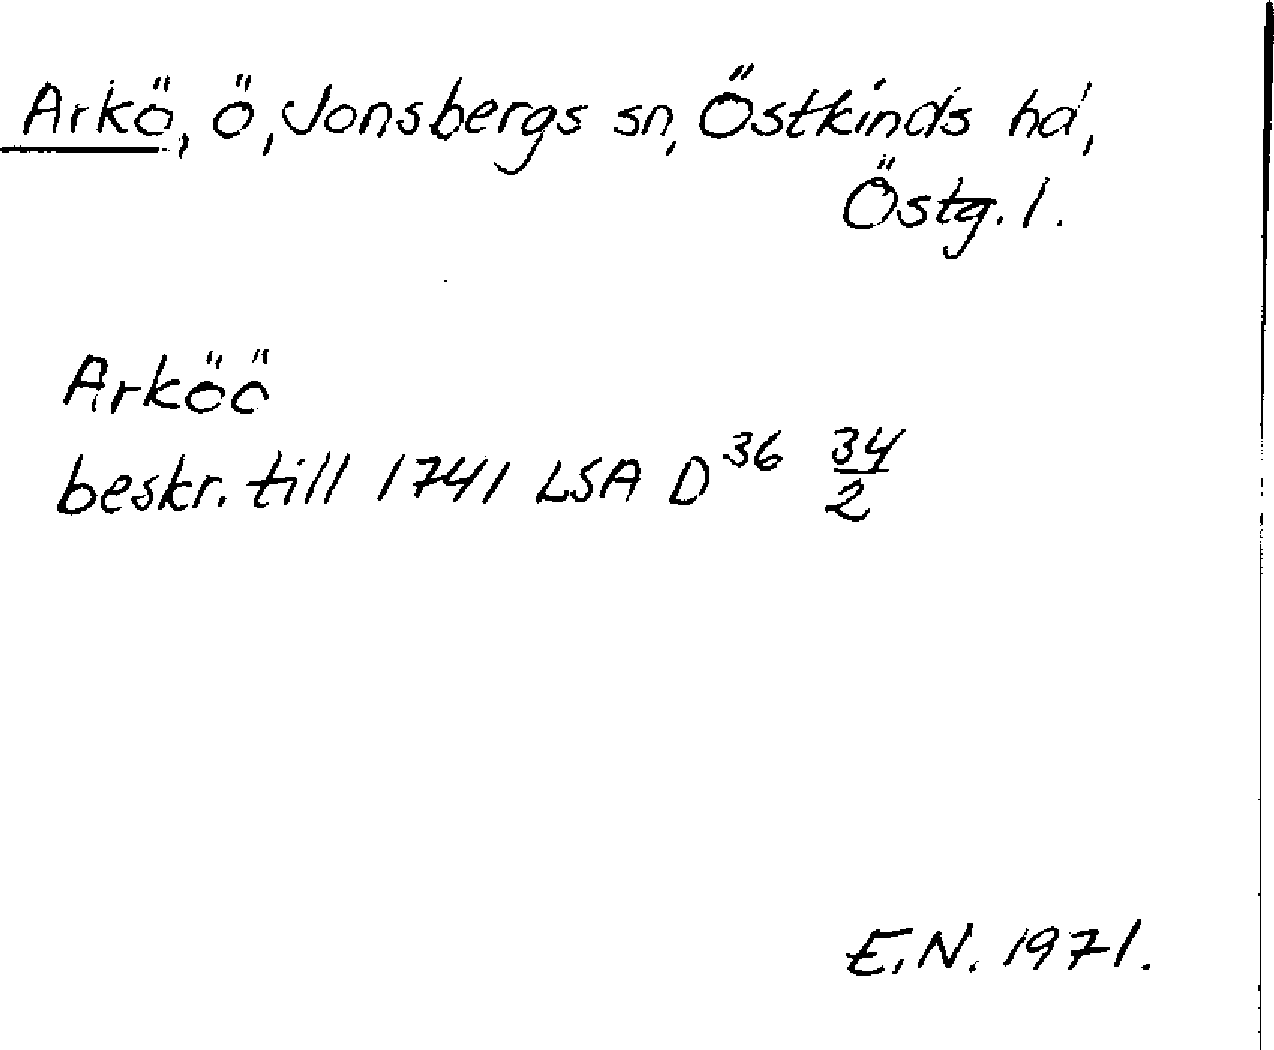 Arkö, ö, Jonsbergs sn, Östkinds hd,
Östg. l.
Arköö
beskr. till 1741 LSA D³⁶ 34/2
E.N. 1971.